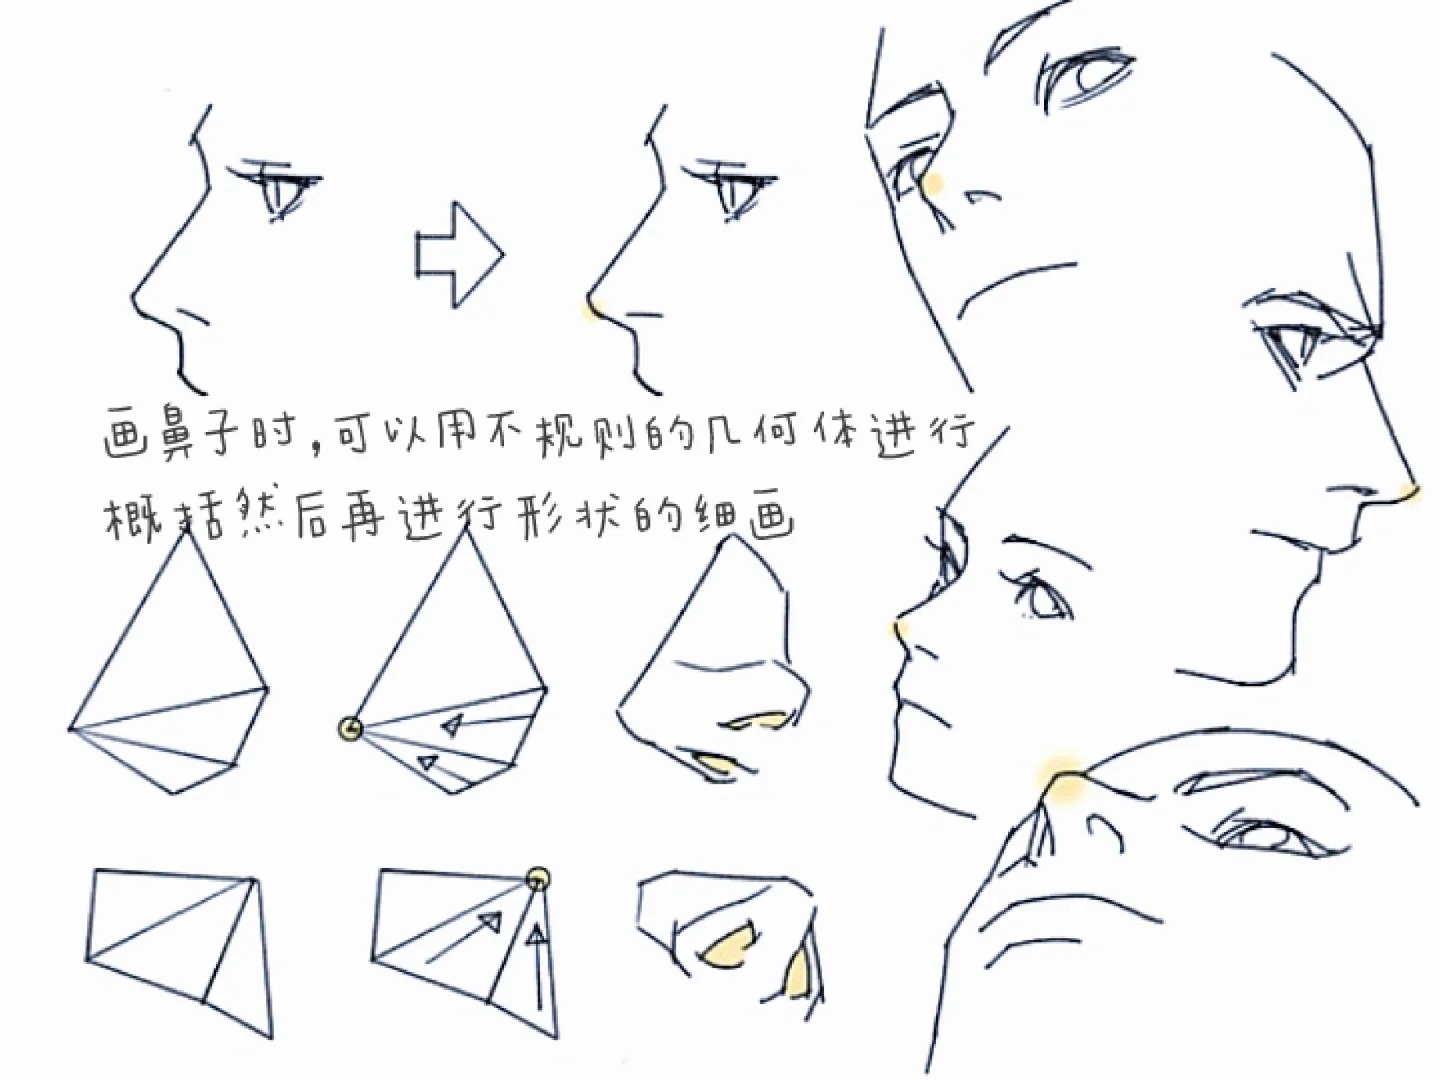 画鼻子时,可以用不规则的几何体进行
概括然后再进行形状的细画